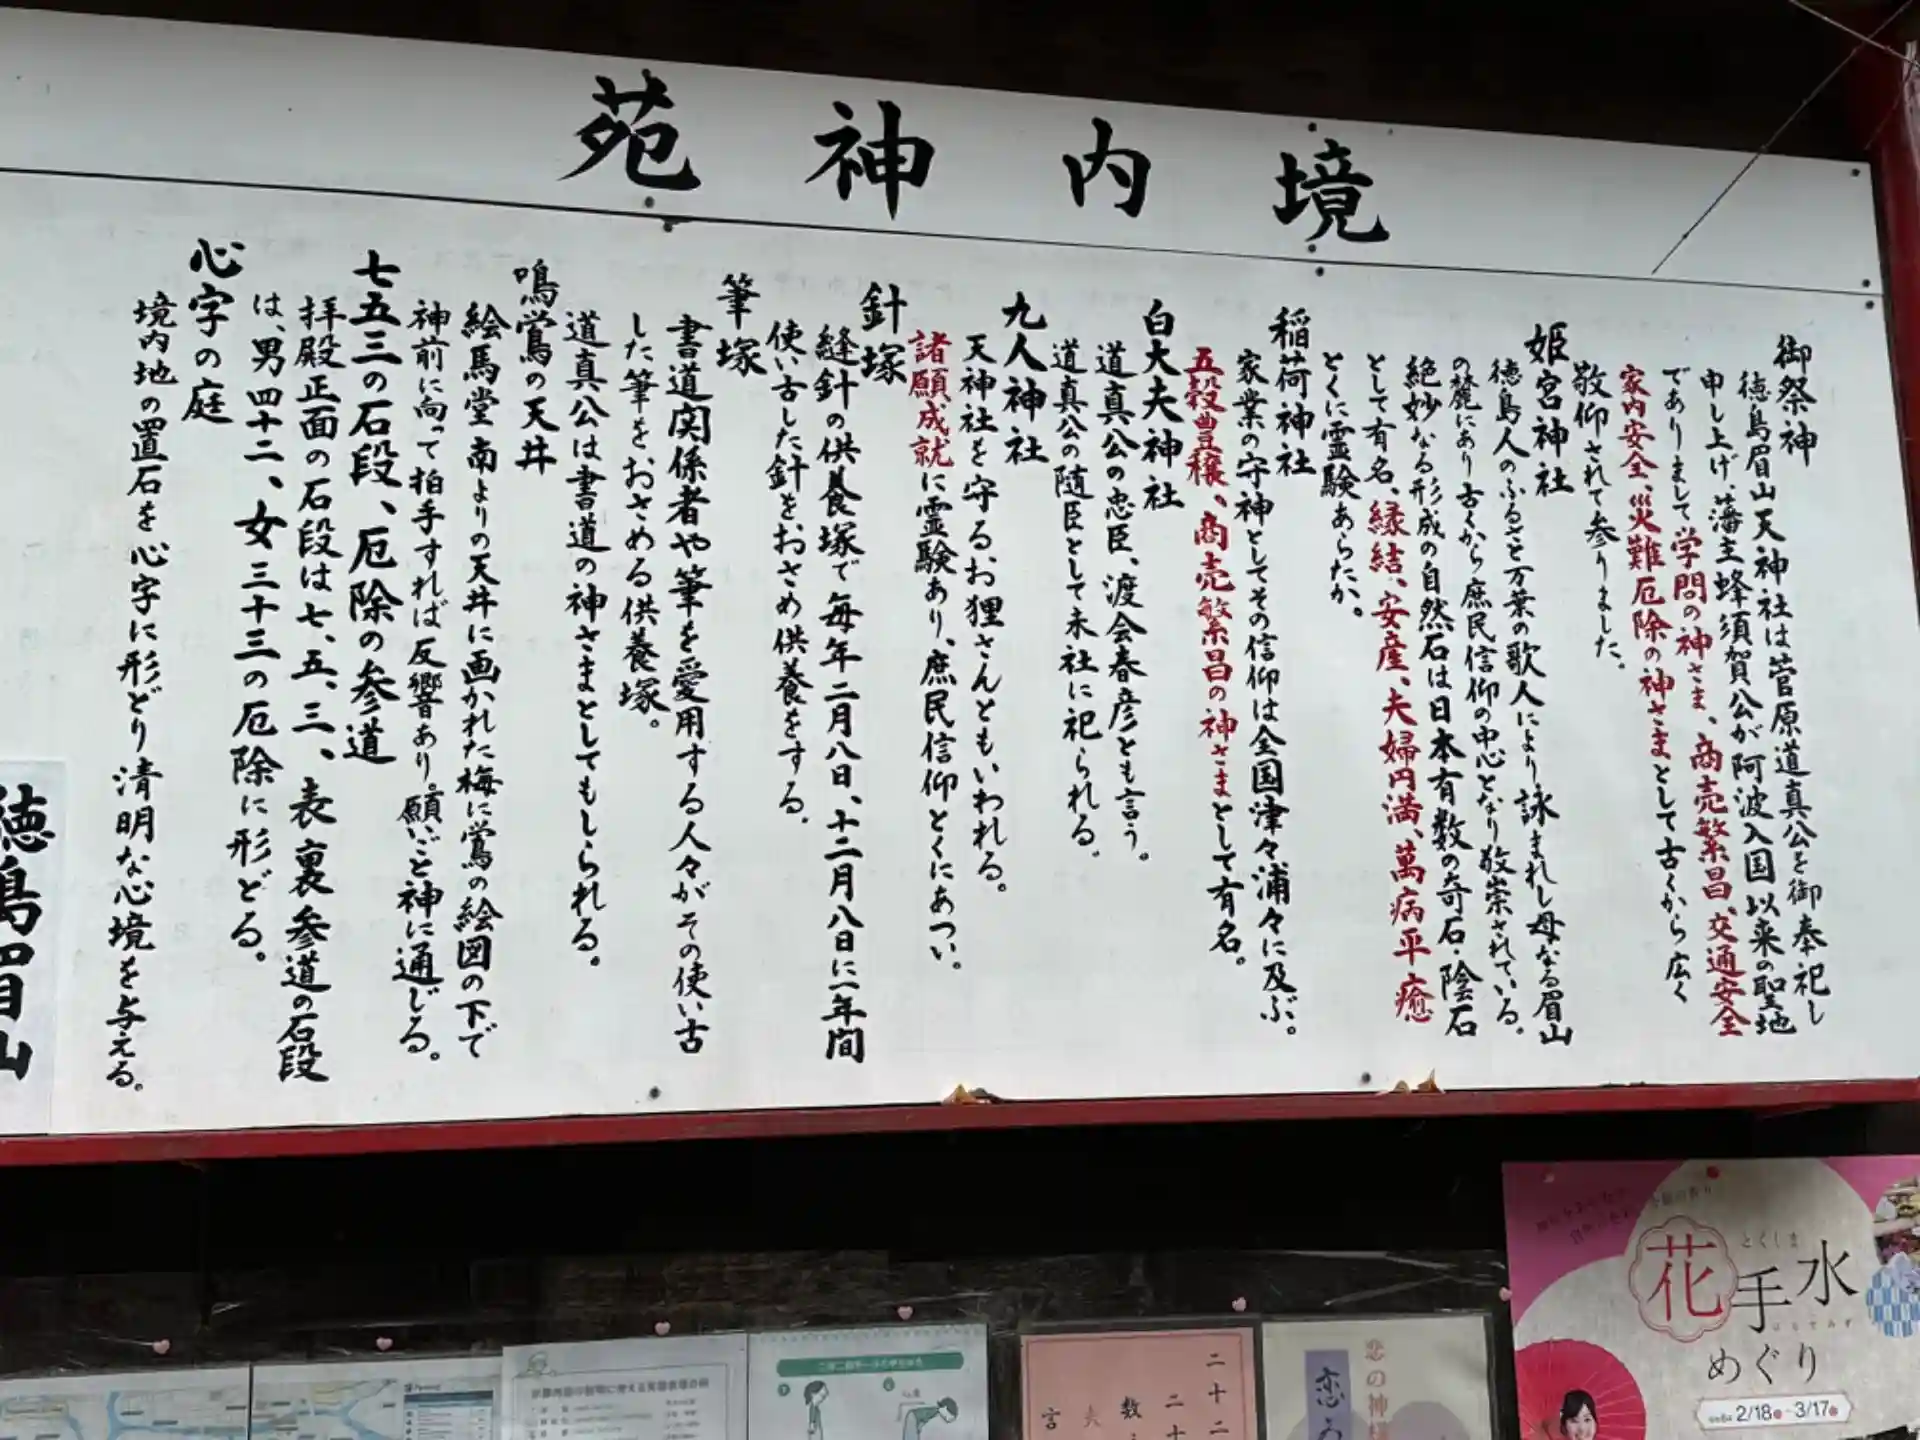 境内神苑
御祭神
徳島眉山天神社は菅原道真公を御奉祀し
申し上げ、藩主蜂須賀公が阿波入国以来の聖地
でありまして学問の神さま、商売繁昌、交通安全
家内安全、災難厄除の神さまとして古くから広く
敬仰されて参りました。
姫宮神社
徳島人のふるさと万葉の歌人により詠まれし母なる眉山
の麓にあり古くから庶民信仰の中心となり敬崇されている。
絶妙なる形成の自然石は日本有数の奇石・陰石
として有名、縁結、安産、夫婦円満、萬病平癒
とくに霊験あらたか。
稲荷神社
家業の守神としてその信仰は全国津々浦々に及ぶ。
五穀豊穣、商売繁昌の神さまとして有名。
白大夫神社
道真公の忠臣、渡会春彦とも言う。
道真公の随臣として末社に祀られる。
九人神社
天神社を守る、お狸さんともいわれる。
諸願成就に霊験あり、庶民信仰とくにあつい。
針塚
縫針の供養塚で毎年二月八日、十二月八日に一年間
使い古した針をおさめ供養をする。
筆塚
書道関係者や筆を愛用する人々がその使い古
した筆を、おさめる供養塚。
道真公は書道の神さまとしてもしられる。
鳴鴬の天井
絵馬堂南よりの天井に画かれた梅に鴬の絵図の下で
神前に向って拍手すれば反響あり。願いごと神に通じる。
七五三の石段、厄除の参道
拝殿正面の石段は七、五、三、表裏参道の石段
は、男四十二、女三十三の厄除に形どる。
心字の庭
境内地の置石を心字に形どり清明な心境を与える。
徳島眉山
とくしま
花手水
はなちょうず
めぐり
2/18 - 3/17
恋の神様
二十二
二十
数
夫
言